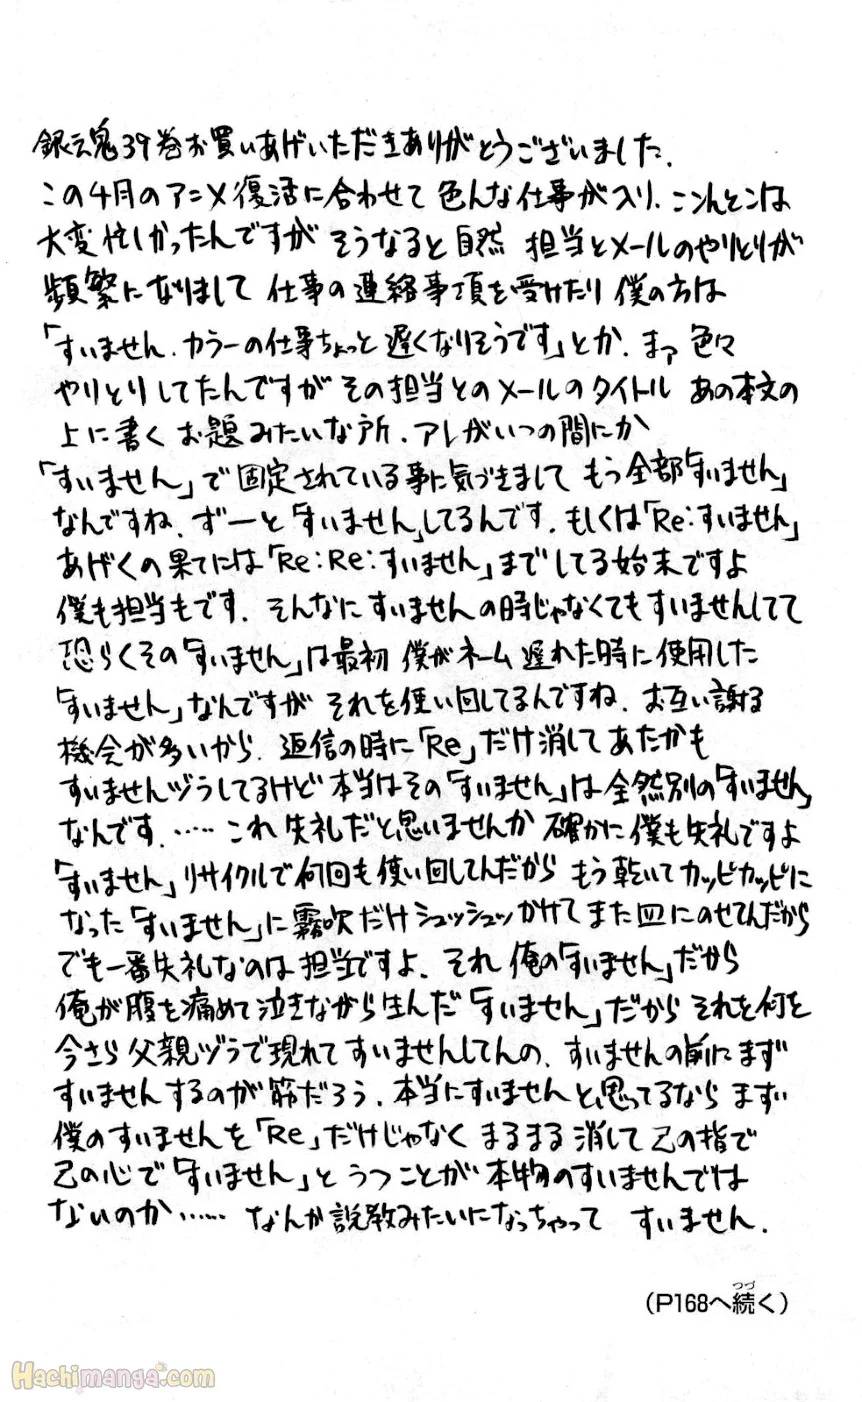 銀魂39巻お買いあげいただきありがとうございました.
この4月のアニメ復活に合わせて 色んな仕事が入り、ここんとこは
大変忙しかったんですが そうなると自然 担当とメールのやりとりが
頻繁になりまして 仕事の連絡事項を受けたり 僕の方は
「すいません.カラーの仕事ちょっと遅くなりそうです」とか.まァ 色々
やりとりしてたんですが その担当とのメールのタイトル あの本文の
上に書く お題みたいな所.アレがいつの間にか
「すいません」で固定されている事に気づきまして もう全部「すいません」
なんですね、ずーっと「すいません」してるんです.もしくは「Re:すいません」
あげくの果てには「Re:Re:すいません」までしてる始末ですよ
僕も担当もです.そんなにすいませんの時じゃなくてもすいませんしてて
恐らくその「すいません」は最初 僕がネーム遅れた時に使用した
「すいません」なんですが それを使い回してるんですね.お互い謝る
機会が多いから.返信の時に「Re」だけ消して あたかも
すいませんヅラしてるけど 本当はその「すいません」は全然別の「すいません」
なんです.…… これ失礼だと思いませんか 確かに僕も失礼ですよ
「すいません」リサイクルで何回も使い回してんだから もう乾いてカッピカッピに
なった「すいません」に霧吹だけシュッシュッかけてまた皿にのせてんだから
でも一番失礼なのは担当ですよ.それ俺の「すいません」だから
俺が腹を痛めて泣きながら生んだ「すいません」だから それを何を
今さら父親ヅラで現れてすいませんしてんの、すいませんの前にまず
すいませんするのが筋だろう.本当にすいませんと思ってるなら まず
僕のすいませんを「Re」だけじゃなく まるまる消して己の指で
己の心で「すいません」と うつことが 本物のすいませんでは
ないのか…… なんか説教みたいになっちゃって すいません.
(P168へ続く)
つづ
Hachimanga.com